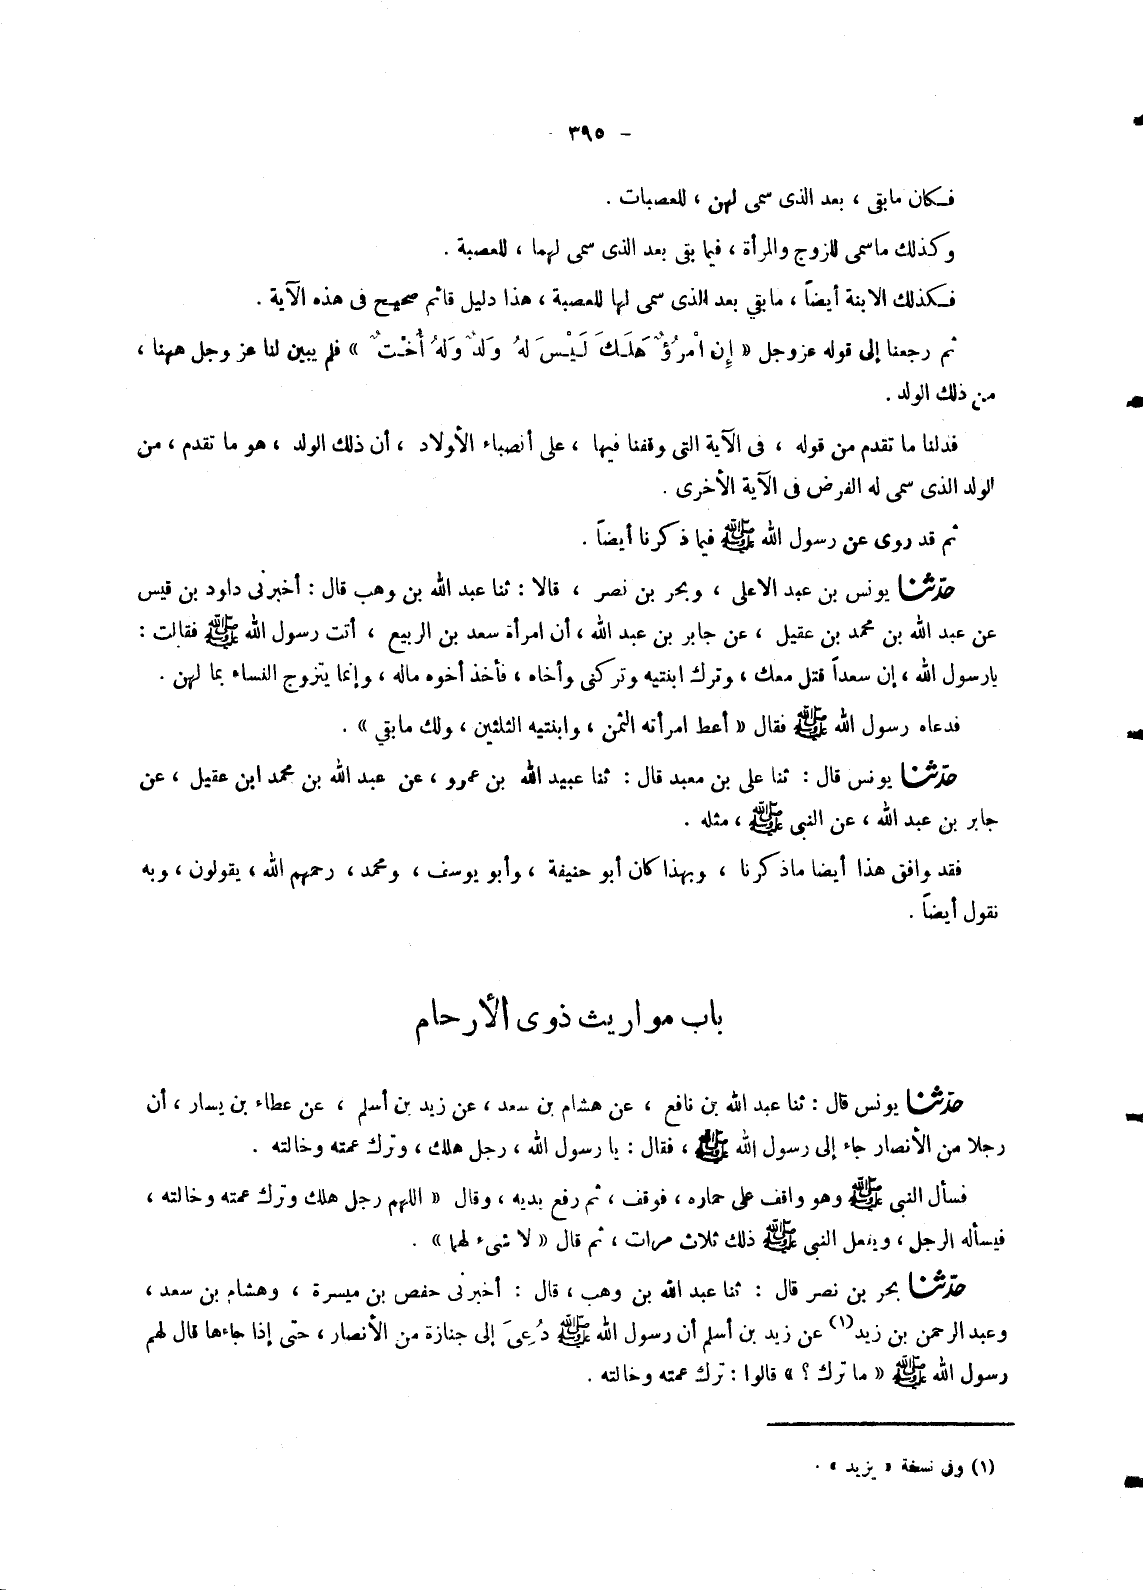 - ٣٩٥ -
فـكان مابقى ، بعد الذى سمى لهن ، للعصبات .
وكذلك ماسمى للزوج والمرأة ، فيما بقى بعد الذى سمى لهما ، للعصبة .
فـكذلك الابنة أيضاً ، مابقي بعد الذى سمى لها للعصبة ، هذا دليل قائم صحيح فى هذه الآية .
ثم رجعنا إلى قوله عزوجل « إِن امْرُؤٌ هَلَـكَ لَيْـسَ لهُ وَلدٌ وَلهُ أُخْـتٌ » فلم يبين لنا عز وجل ههنا ،
من ذلك الولد .
فدلنا ما تقدم من قوله ، فى الآية التى وقفنا فيها ، على أنصباء الأولاد ، أن ذلك الولد ، هو ما تقدم ، من
الولد الذى سمى له الفرض فى الآية الأخرى .
ثم قد روى عن رسول الله ﷺ فيما ذكرنا أيضاً .
حدّثنا يونس بن عبد الاعلى ، وبحر بن نصر ، قالا : ثنا عبد الله بن وهب قال : أخبرنى داود بن قيس
عن عبد الله بن محمد بن عقيل ، عن جابر بن عبد الله ، أن امرأة سعد بن الربيع ، أتت رسول الله ﷺ فقالت :
يارسول الله ، إن سعداً قتل معك ، وترك ابنتيه وتركنى وأخاه ، فأخذ أخوه ماله ، وإنما يتزوج النساء بما لهن .
فدعاه رسول الله ﷺ فقال « أعط امرأته الثمن ، وابنتيه الثلثين ، ولك مابقي » .
حدّثنا يونس قال : ثنا على بن معبد قال : ثنا عبيد الله بن عمرو ، عن عبد الله بن محمد ابن عقيل ، عن
جابر بن عبد الله ، عن النبى ﷺ ، مثله .
فقد وافق هذا أيضا ماذكرنا ، وبهذا كان أبو حنيفة ، وأبو يوسف ، ومحمد ، رحمهم الله ، يقولون ، وبه
نقول أيضاً .
باب مواريث ذوى الأرحام
حدّثنا يونس قال : ثنا عبد الله بن نافع ، عن هشام بن سعد ، عن زيد بن أسلم ، عن عطاء بن يسار ، أن
رجلا من الأنصار جاء إلى رسول الله ﷺ ، فقال : يا رسول الله ، رجل هلك ، وترك عمته وخالته .
فسأل النبى ﷺ وهو واقف على حماره ، فوقف ، ثم رفع يديه ، وقال « اللهم رجل هلك وترك عمته وخالته ،
فيسأله الرجل ، ويفعل النبى ﷺ ذلك ثلاث مرات ، ثم قال « لا شىء لهما » .
حدّثنا بحر بن نصر قال : ثنا عبد الله بن وهب ، قال : أخبرنى حفص بن ميسرة ، وهشام بن سعد ،
وعبد الرحمن بن زيد(١) عن زيد بن أسلم أن رسول الله ﷺ دُعِىَ إلى جنازة من الأنصار ، حتى إذا جاءها قال لهم
رسول الله ﷺ « ما ترك ؟ » قالوا : ترك عمته وخالته .
(١) وفى نسخة « يزيد » .